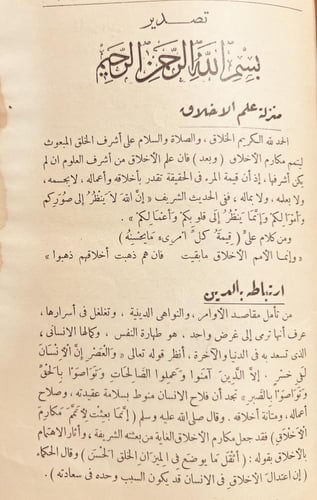 تصدير
بسم الله الرحمن الرحيم
منزلة علم الأخلاق
الحمد لله الكريم الخلاق، والصلاة والسلام على أشرف الخلق المبعوث
ليتمم مكارم الأخلاق (وبعد) فان علم الأخلاق من أشرف العلوم ان لم
يكن أشرفها، إذ أن قيمة المرء في الحقيقة تقدر بأخلاقه وأعماله، لا بجسمه،
ولا بعلمه، ولا بماله، ففي الحديث الشريف «إِنَّ اللهَ لاَ يَنْظُرُ إِلَى صُوَرِكُمْ
وَأَمْوَالِكُمْ وَإِنَّمَا يَنْظُرُ إِلَى قُلُوبِكُمْ وَأَعْمَالِكُمْ».
ومن كلام علىّ (قِيمَةُ كُلِّ امرىءٍ مَايُحْسِنُهُ)
«وإنما الامم الاخلاق مابقيت فان هم ذهبت أخلاقهم ذهبوا»
ارتباطه بالدين
من تأمل مقاصد الاوامر، والنواهى الدينية، وتغلغل فى أسرارها،
عرف أنها ترمى إلى غرض واحد، هو طهارة النفس، وكمالها الانسانى،
الذى تسعد به فى الدنيا والآخرة، أنظر قوله تعالى «وَالْعَصْرِ إِنَّ الاْنسَانَ
لَفِي خُسْرٍ. إِلاَّ الَّذِينَ آمَنُوا وَعَمِلُوا الصَّالِحَاتِ وَتَوَاصَوْا بِالْحَقِّ
وَتَوَاصَوْا بِالصَّبْرِ» تجد أن فلاح الانسان منوط بسلامة عقيدته، وصلاح
أعماله، ومتانة أخلاقه. وقال صلى الله عليه وسلم (إِنَّمَا بُعِثْتُ لأُتَمِّمَ مَكارِمَ
الأَخْلَاقِ) فقد جعل مكارم الأخلاق الغاية من بعثته الشريفة، وأثار الاهتمام
بالاخلاق بقوله: (أَثْقَلُ مَا يُوضَعُ فِى الْمِيزَانِ الْخُلُقُ الْحَسَنُ) وقال الحكماء
(إن اعتدال الاخلاق فى الانسان قد يكون السبب وحده فى سعادته).